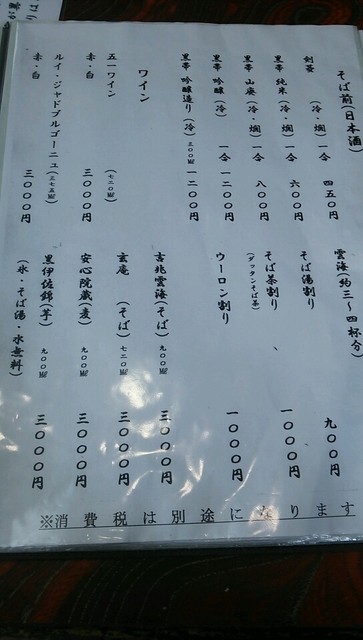 そば前(日本酒)
剣菱 (冷・燗) 一合 四五〇円
黒帯 純米 (冷・燗) 一合 六〇〇円
黒帯 山廃 (冷・燗) 一合 八〇〇円
黒帯 吟醸 (冷) 一合 一二〇〇円
黒帯 吟醸造り (冷) 三〇〇㎖ 一二〇〇円
ワイン
五一ワイン (七二〇㎖)
赤・白 三〇〇〇円
ルイ・ジャドブルゴーニュ (三七五㎖)
赤・白 三〇〇〇円
雲海(約三〜四杯分) 九〇〇円
そば湯割り
そば茶割り 一〇〇〇円
(ダッタンそば茶)
ウーロン割り 一〇〇〇円
古兆雲海(そば) 九〇〇㎖ 三〇〇〇円
玄庵 (そば) 七二〇㎖ 三〇〇〇円
安心院蔵(麦) 九〇〇㎖ 三〇〇〇円
黒伊佐錦(芋) 九〇〇㎖ 三〇〇〇円
(氷・そば湯・水無料)
※消費税は別途になります